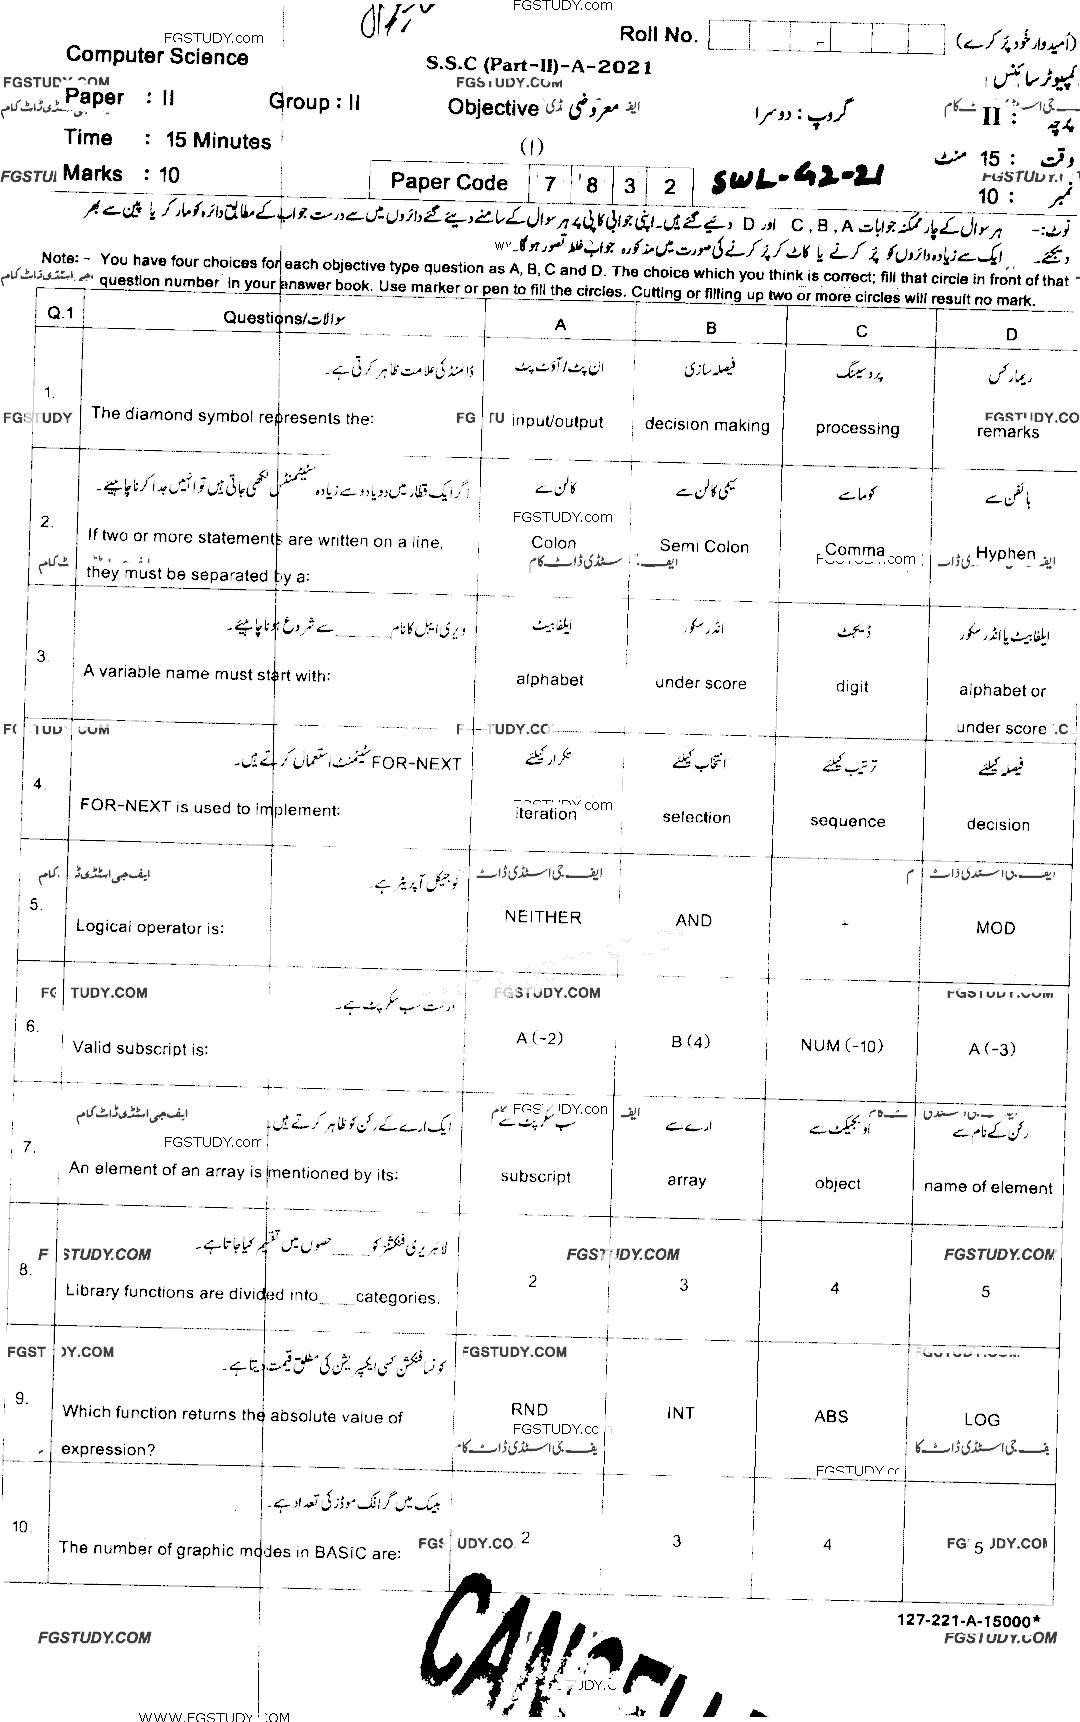 FGSTUDY.com
FGSTUDY.com
Roll No.
(اُمیدوار خود پُر کرے)
Computer Science
S.S.C (Part-II)-A-2021
کمپیوٹر سائنس
FGSTUDY.COM
FGSTUDY.COM
Paper : II
Group : II
Objective
معروضی
گروپ : دوسرا
پرچہ : II
Time : 15 Minutes
(I)
وقت : 15 منٹ
Marks : 10
Paper Code 7 8 3 2
SWL-42-21
نمبر : 10
نوٹ:- ہر سوال کے چار ممکنہ جوابات C , B , A اور D دیے گئے ہیں۔ اپنی جوابی کاپی پر ہر سوال کے سامنے دیئے گئے دائروں میں سے درست جواب کے مطابق دائرہ کو مارکر یا پین سے بھر
دیجئے۔ ایک سے زیادہ دائروں کو پُر کرنے یا کاٹ کر پُر کرنے کی صورت میں مذکورہ جواب غلط تصور ہوگا۔
Note: - You have four choices for each objective type question as A, B, C and D. The choice which you think is correct; fill that circle in front of that
question number in your answer book. Use marker or pen to fill the circles. Cutting or filling up two or more circles will result no mark.
Q.1 Questions/سوالات A B C D
ڈائمنڈ کی علامت ظاہر کرتی ہے۔ ان پٹ/آؤٹ پٹ فیصلہ سازی پروسیسنگ ریمارکس
1. The diamond symbol represents the: input/output decision making processing remarks
اگر ایک قطار میں دو یا دو سے زیادہ سٹیٹمنٹس لکھی جاتی ہیں تو انہیں جدا کرنا چاہیئے۔ کالن سے سیمی کالن سے کوما سے ہائفن سے
FGSTUDY.com
2. If two or more statements are written on a line, Colon Semi Colon Comma Hyphen
they must be separated by a:
ویری ایبل کا نام ____ سے شروع ہونا چاہیئے۔ ایلفابیٹ انڈر سکور ڈیجٹ ایلفابیٹ یا انڈر سکور
3. A variable name must start with: alphabet under score digit alphabet or
under score
FOR-NEXT سٹیٹمنٹ استعمال کرتے ہیں۔ تکرار کیلئے انتخاب کیلئے ترتیب کیلئے فیصلہ کیلئے
4. FOR-NEXT is used to implement: iteration selection sequence decision
لوجیکل آپریٹر ہے۔
5. Logical operator is: NEITHER AND + MOD
FGSTUDY.COM
درست سب سکرپٹ ہے۔
6. Valid subscript is: A (-2) B (4) NUM (-10) A (-3)
ایف جی اسٹڈی ڈاٹ کام
ایک ارے کے رکن کو ظاہر کرتے ہیں۔ سب سکرپٹ سے ارے سے اوبجیکٹ سے رکن کے نام سے
FGSTUDY.com
7. An element of an array is mentioned by its: subscript array object name of element
لائبریری فنکشنز کو ____ حصوں میں تقسیم کیا جاتا ہے۔
FGSTUDY.COM FGSTUDY.COM
8. Library functions are divided into____categories. 2 3 4 5
FGSTUDY.COM FGSTUDY.COM
کونسا فنکشن کسی ایکسپریشن کی مطلق قیمت دیتا ہے۔
9. Which function returns the absolute value of RND INT ABS LOG
expression?
بیسک میں گرافک موڈز کی تعداد ہے۔
10. The number of graphic modes in BASIC are: 2 3 4 5
127-221-A-15000*
FGSTUDY.COM
FGSTUDY.COM
WWW.FGSTUDY.COM